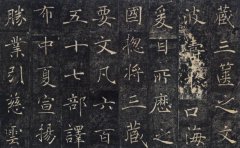 藏三篋之文
波濤口海
爰自所歷之
國揔將三藏
要文凡六百
五十七部譯
布中夏宣揚
勝業引慈雲